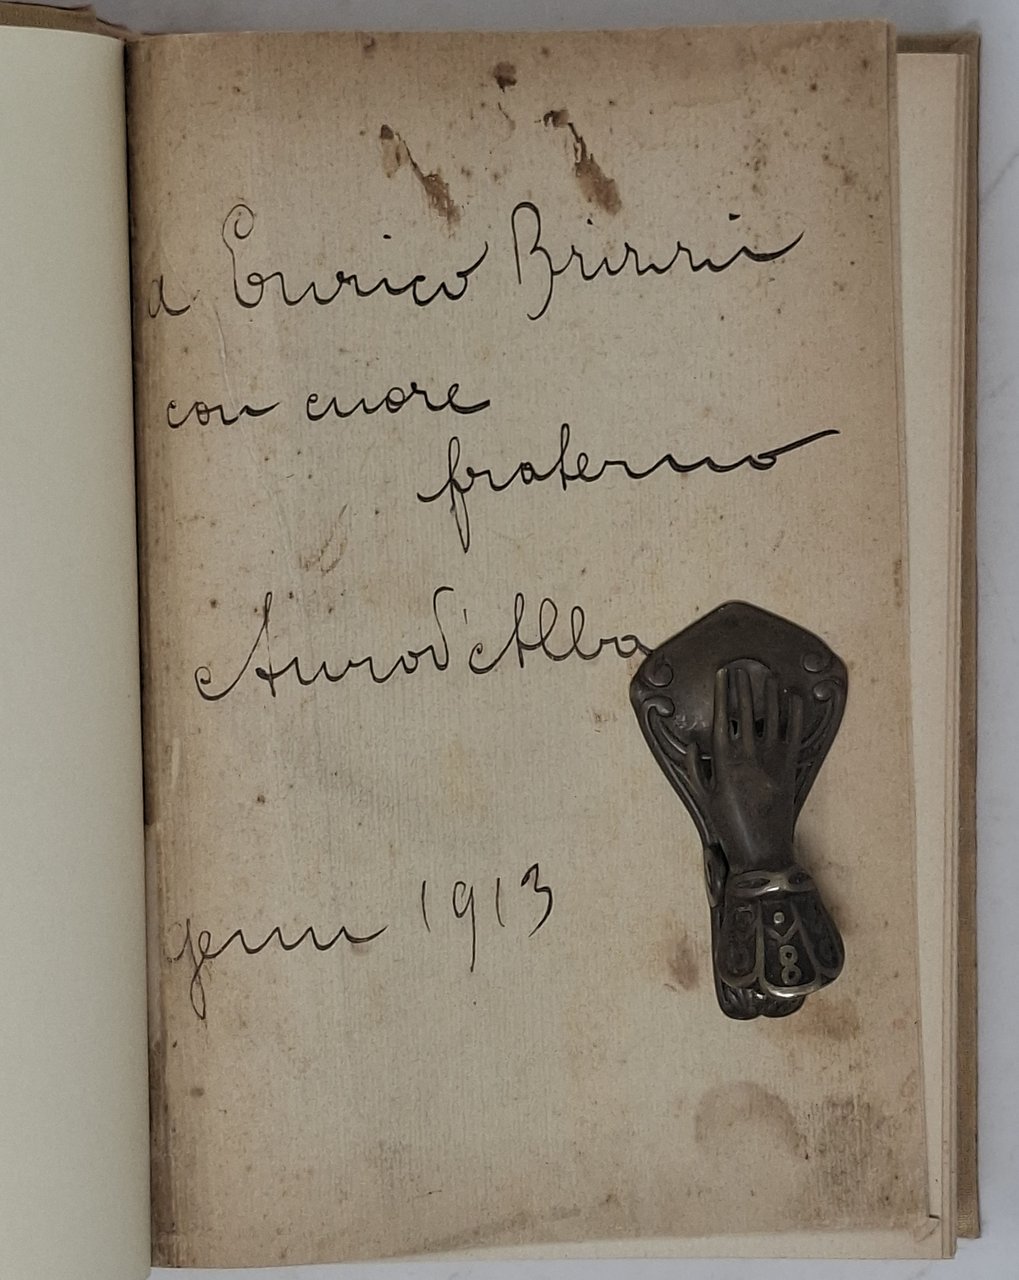 a Enrico
con cuore
fraterno
Auro d'Alba
genn 1913